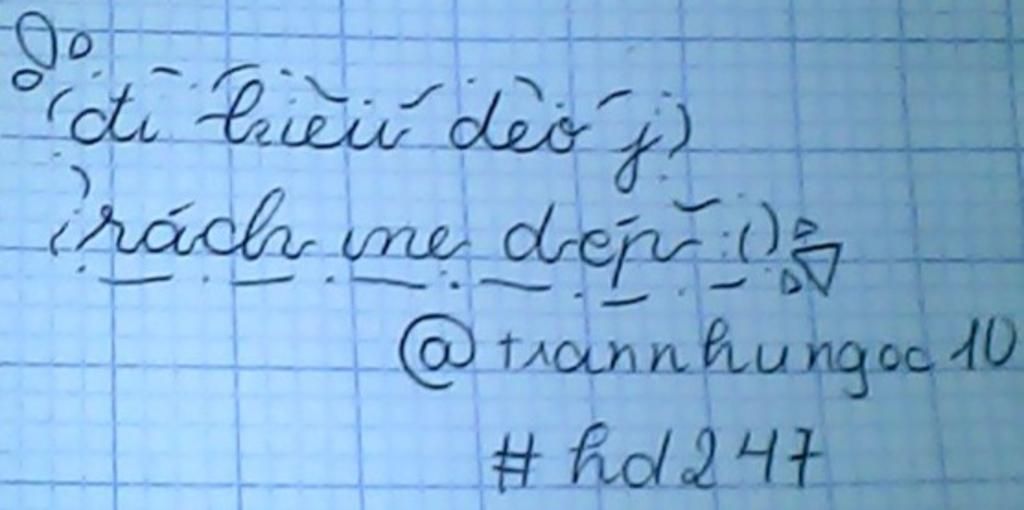 đi hiếu dèo j
rách me dep
@trannhungoc10
#hd247